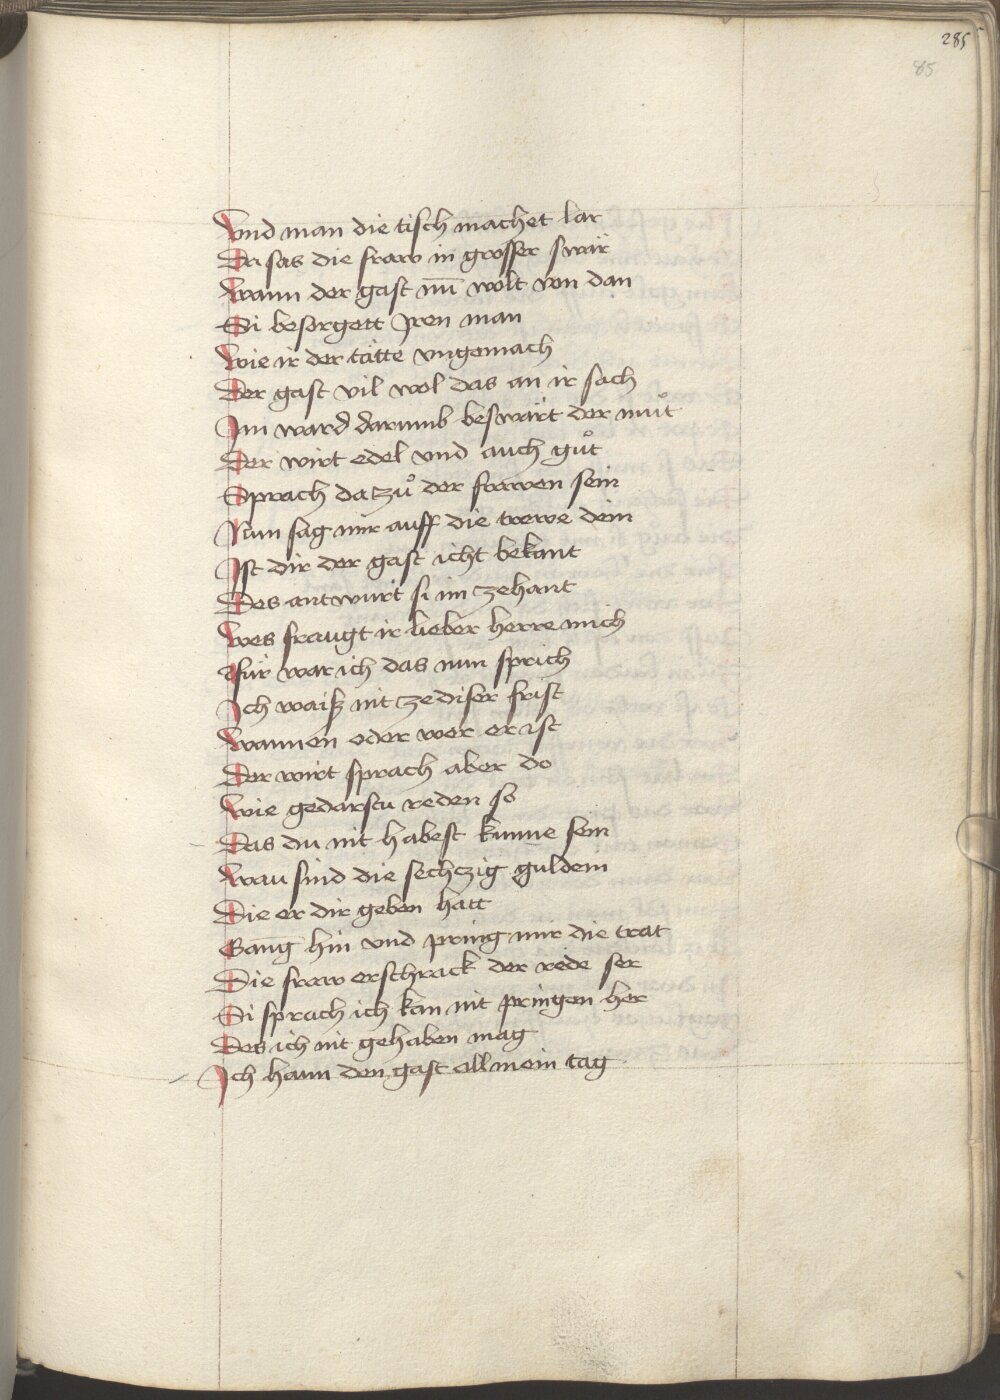 285
85
Vnd man die tisch machet lar
Da sas die fraw in grosser swär
Wann der gast nun̄ wolt von dan
Si besorgett Jren man
Wie ir der tätte vngemach
Der gast vil wol das an ir sach
Im ward darumb beswärt der muͦt
Der wirt edel vnd auch guͦt
Sprach da zuͦ der frawen sein
Nun sag mir auff die trewe dein
Ist dir der gast icht bekant
Des antwurt si im zehant
Wes fraugt ir lieber herre mich
Für war ich das nun sprich
Ich waiß nit ze diser frist
Wannen oder wer er ist
Der wirt sprach aber do
Wie gedarstu reden so
Das du nit habest künne sein
Wau sind die sechczig guldein
Die er dir geben hatt
Gang hin vnd pring mir die trat
Die fraw erschrack der rede ser
Si sprach ich kan nit pringen her
Des ich nit gehaben mag
Ich hann den gast all mein tag